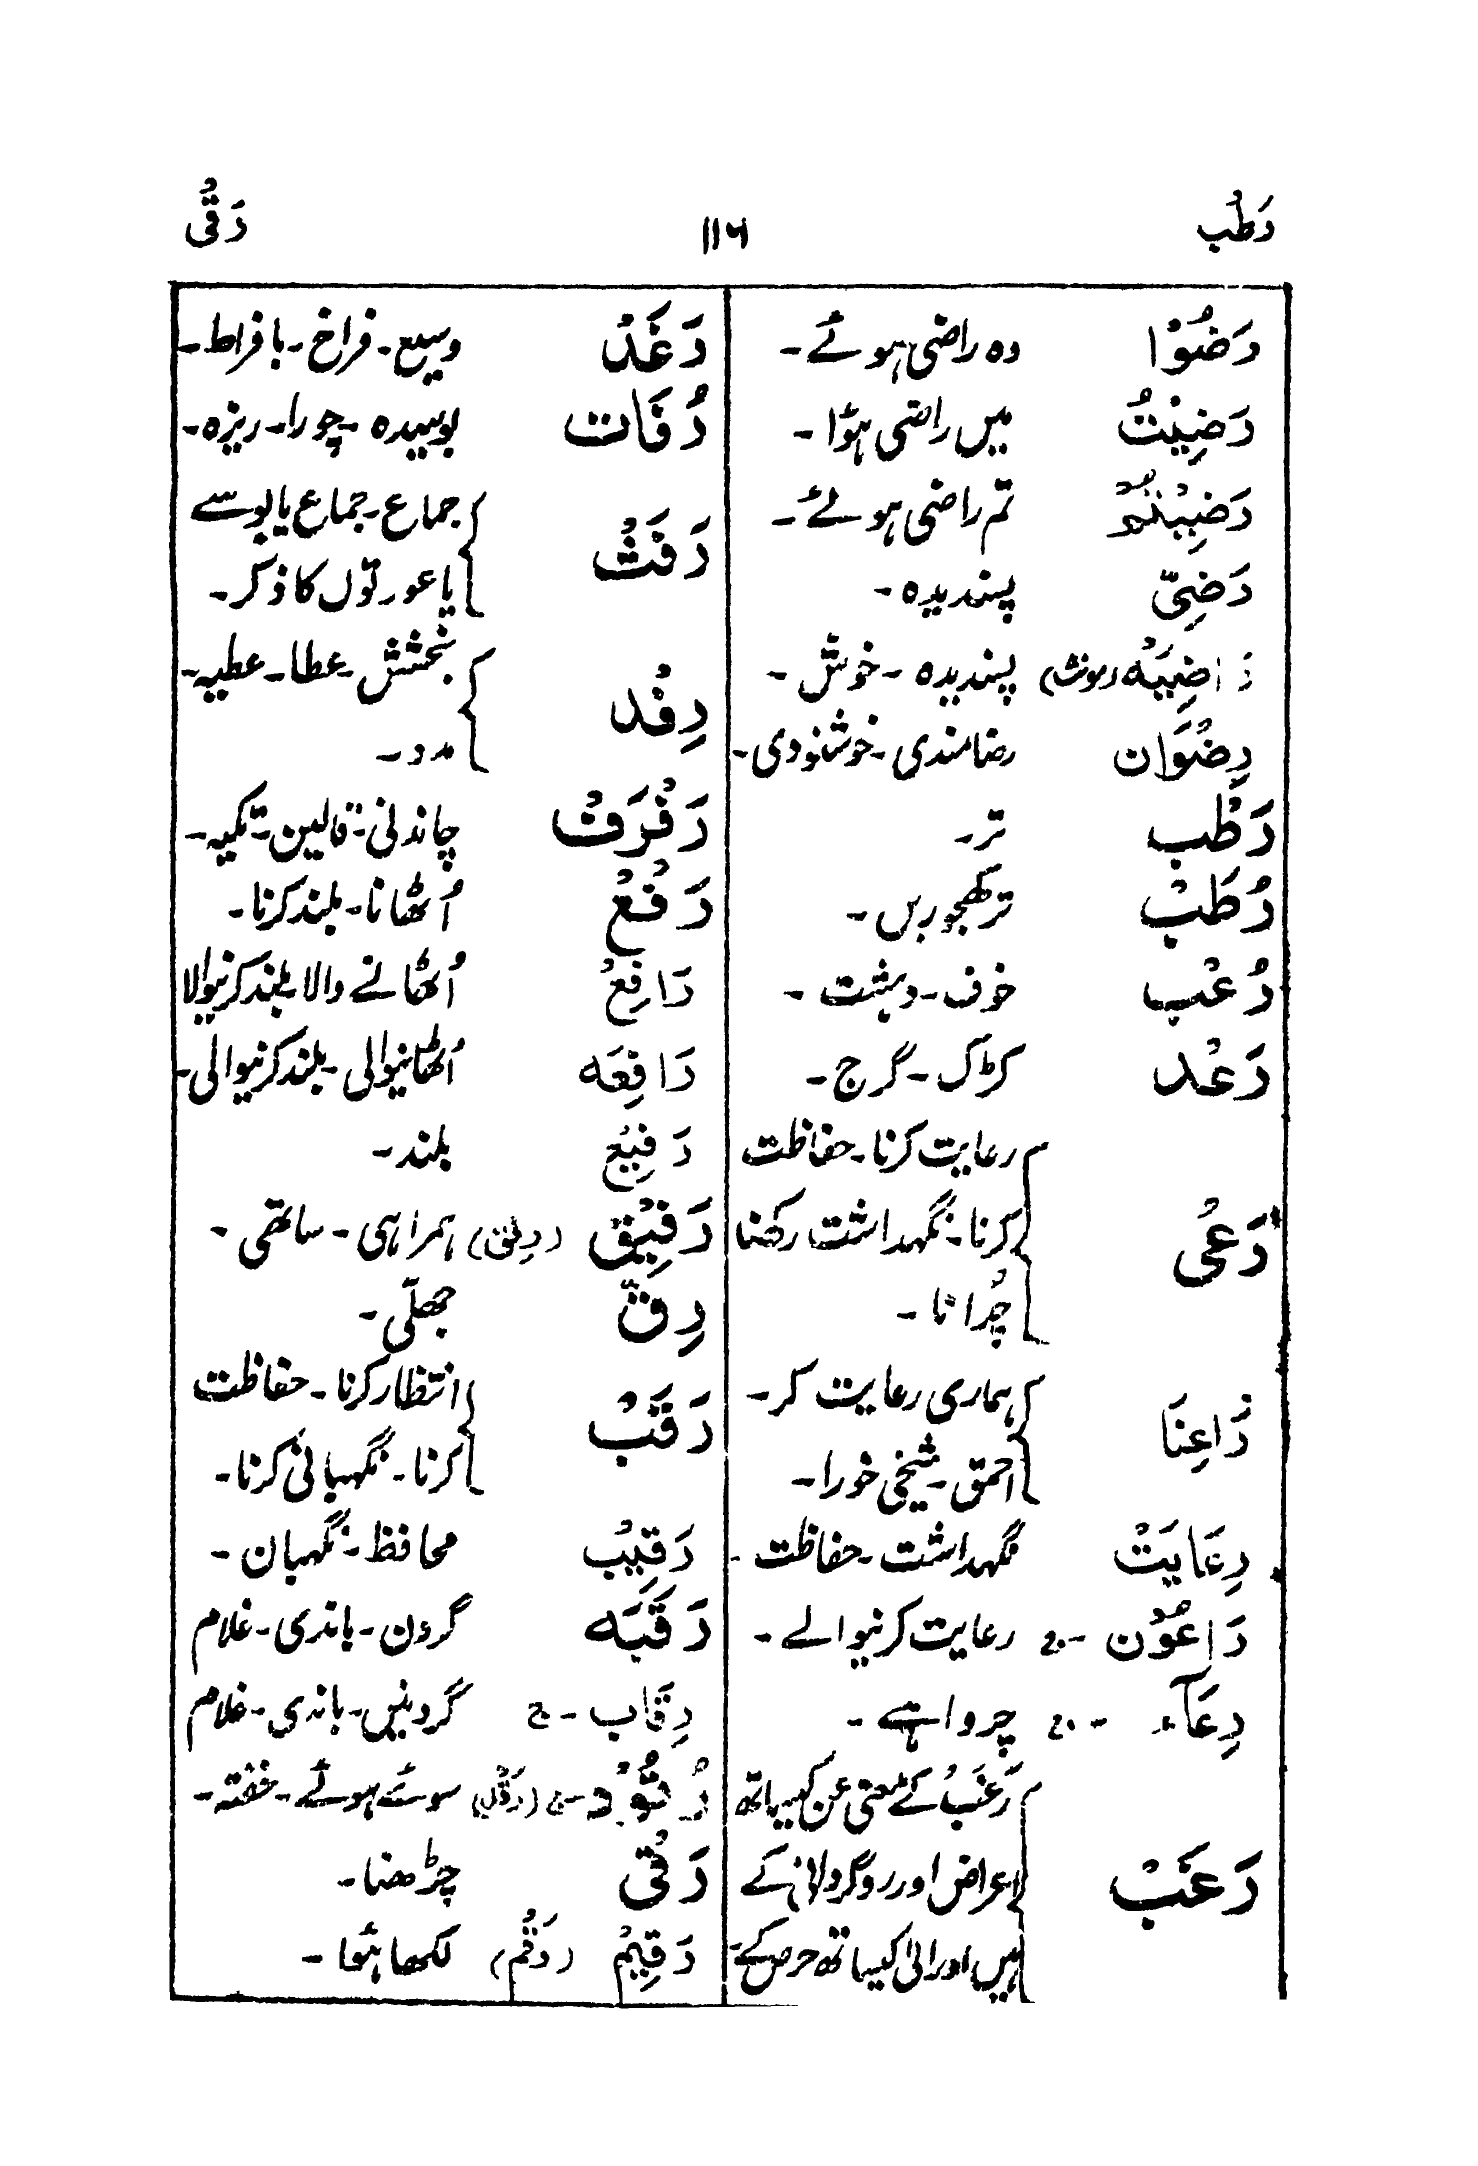 رَطْب ۱۱۶ رَقْی
رَضُوْا وہ راضی ہوئے۔
رَضِیْتُ میں راضی ہؤا۔
رَضِیْتُمْ تم راضی ہوئے۔
رَضِیّ پسندیدہ۔
رَاضِیَہ (مونث) پسندیدہ۔ خوش۔
رِضْوَان رضامندی۔ خوشنودی۔
رَطْب تر۔
رُطَبْ تر کھجوریں۔
رُعْب خوف۔ دہشت۔
رَعْد کڑک۔ گرج۔
رَعْی رعایت کرنا۔ حفاظت
کرنا۔ نگہداشت رکھنا
چُرانا۔
رَاعِنَا ہماری رعایت کر۔
احمق۔ شیخی خورا۔
رِعَایَتْ نگہداشت۔ حفاظت۔
رَاعُوْن۔ ج رعایت کرنیوالے۔
رِعَآء۔ ج چرواہے۔
رَغَبْ رَغَبْ کے معنی عن کیساتھ
اعراض اور روگردانی کے
ہیں اور الیٰ کیساتھ حرص کے۔
رَغَدْ وسیع۔ فراخ۔ بافراط۔
رُفَات بوسیدہ۔ چورا۔ ریزہ۔
رَفَثْ جماع۔ جماع یا بوسے
یا عورتوں کا ذکر۔
رِفْد بخشش۔ عطا۔ عطیہ۔
مدد۔
رَفْرَفْ چاندنی۔ قالین۔ تکیہ۔
رَفْعْ اُٹھانا۔ بلند کرنا۔
رَافِعْ اُٹھانے والا بلند کرنیوالا
رَافِعَہ اُٹھانیوالی۔ بلند کرنیوالی۔
رَفِیْعْ بلند۔
رَفِیْق (رفق) ہمراہی۔ ساتھی۔
رِقّ جھلّی۔
رَقَبْ انتظار کرنا۔ حفاظت
کرنا۔ نگہبانی کرنا۔
رَقِیْب محافظ۔ نگہبان۔
رَقَبَہ گردن۔ باندی۔ غلام
رِقَاب۔ ج گردنیں۔ باندی۔ غلام
رُقُوْد۔ ج سوئے ہوئے۔ خفتہ۔
رَقْی چڑھنا۔
رَقِیْمْ (رَقْم) لکھا ہؤا۔